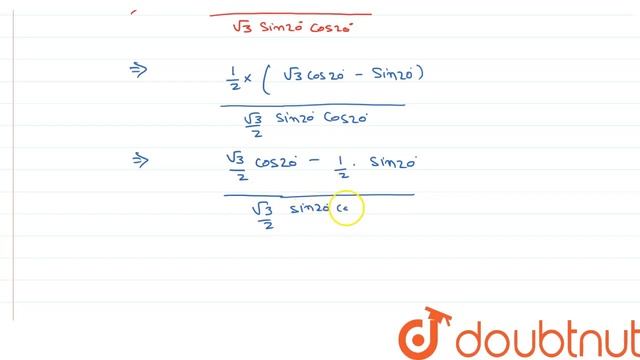 √3 Sin20° Cos20°
⇒ 1/2 × ( √3 Cos20° - Sin20° )
√3/2 Sin20° Cos20°
⇒ √3/2 Cos20° - 1/2 . Sin20°
√3/2 Sin20° Co
doubtnut